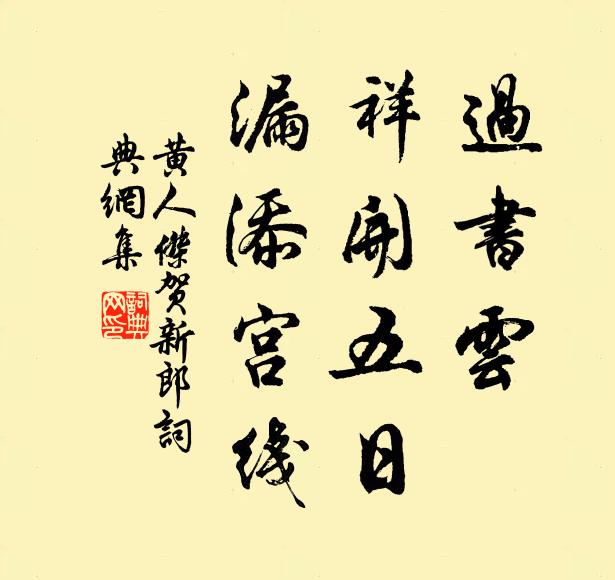 過書雲
祥開五日
漏添宮綫
黄人傑賀新郎詞
典網集
詞典
网印